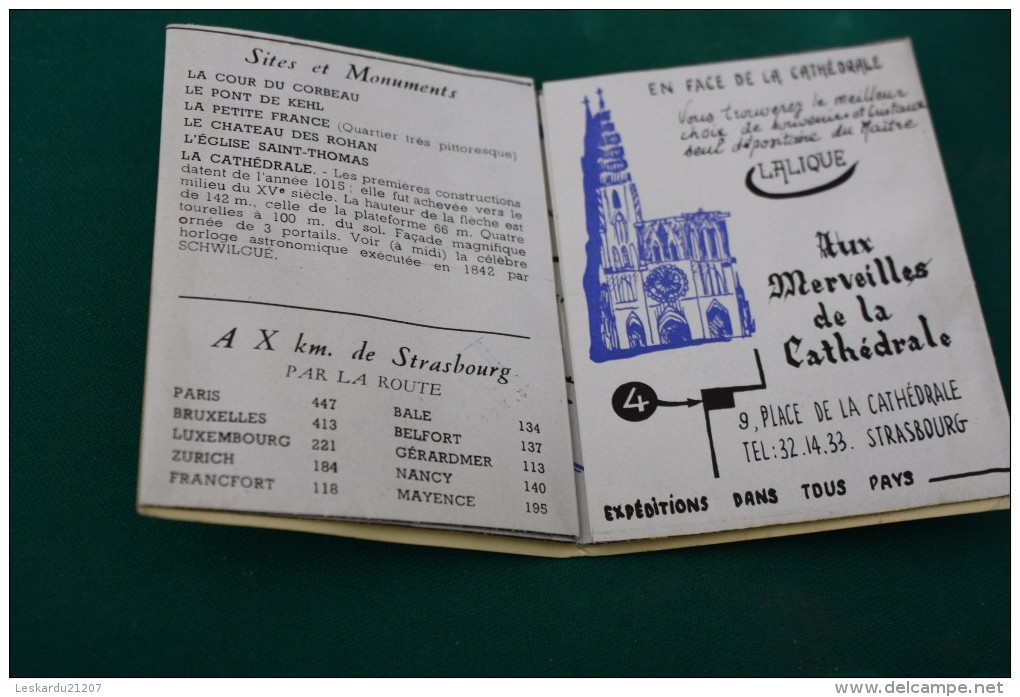 Sites et Monuments
LA COUR DU CORBEAU
LE PONT DE KEHL
LA PETITE FRANCE (Quartier très pittoresque)
LE CHATEAU DES ROHAN
L'ÉGLISE SAINT-THOMAS
LA CATHÉDRALE. - Les premieres constructions
datent de l'année 1015 ; elle fut achevée vers le
milieu du XVe siècle. La hauteur de la flèche est
de 142 m., celle de la plateforme 66 m. Quatre
tourelles à 100 m. du sol. Façade magnifique
ornée de 3 portails. Voir (à midi) la célèbre
horloge astronomique exécutée en 1842 par
SCHWILGUÉ.
A X km. de Strasbourg
PAR LA ROUTE
PARIS 447
BRUXELLES 413
LUXEMBOURG 221
ZURICH 184
FRANCFORT 118
BALE 134
BELFORT 137
GÉRARDMER 113
NANCY 140
MAYENCE 195
EN FACE DE LA CATHÉDRALE
Vous trouverez le meilleur
choix de souvenirs et Cristaux
seul dépositaire du Maître
LALIQUE
Aux
Merveilles
de la
Cathédrale
4
9, PLACE DE LA CATHÉDRALE
TEL: 32.14.33. STRASBOURG
EXPÉDITIONS DANS TOUS PAYS
Leskardu21207
www.delcampe.net